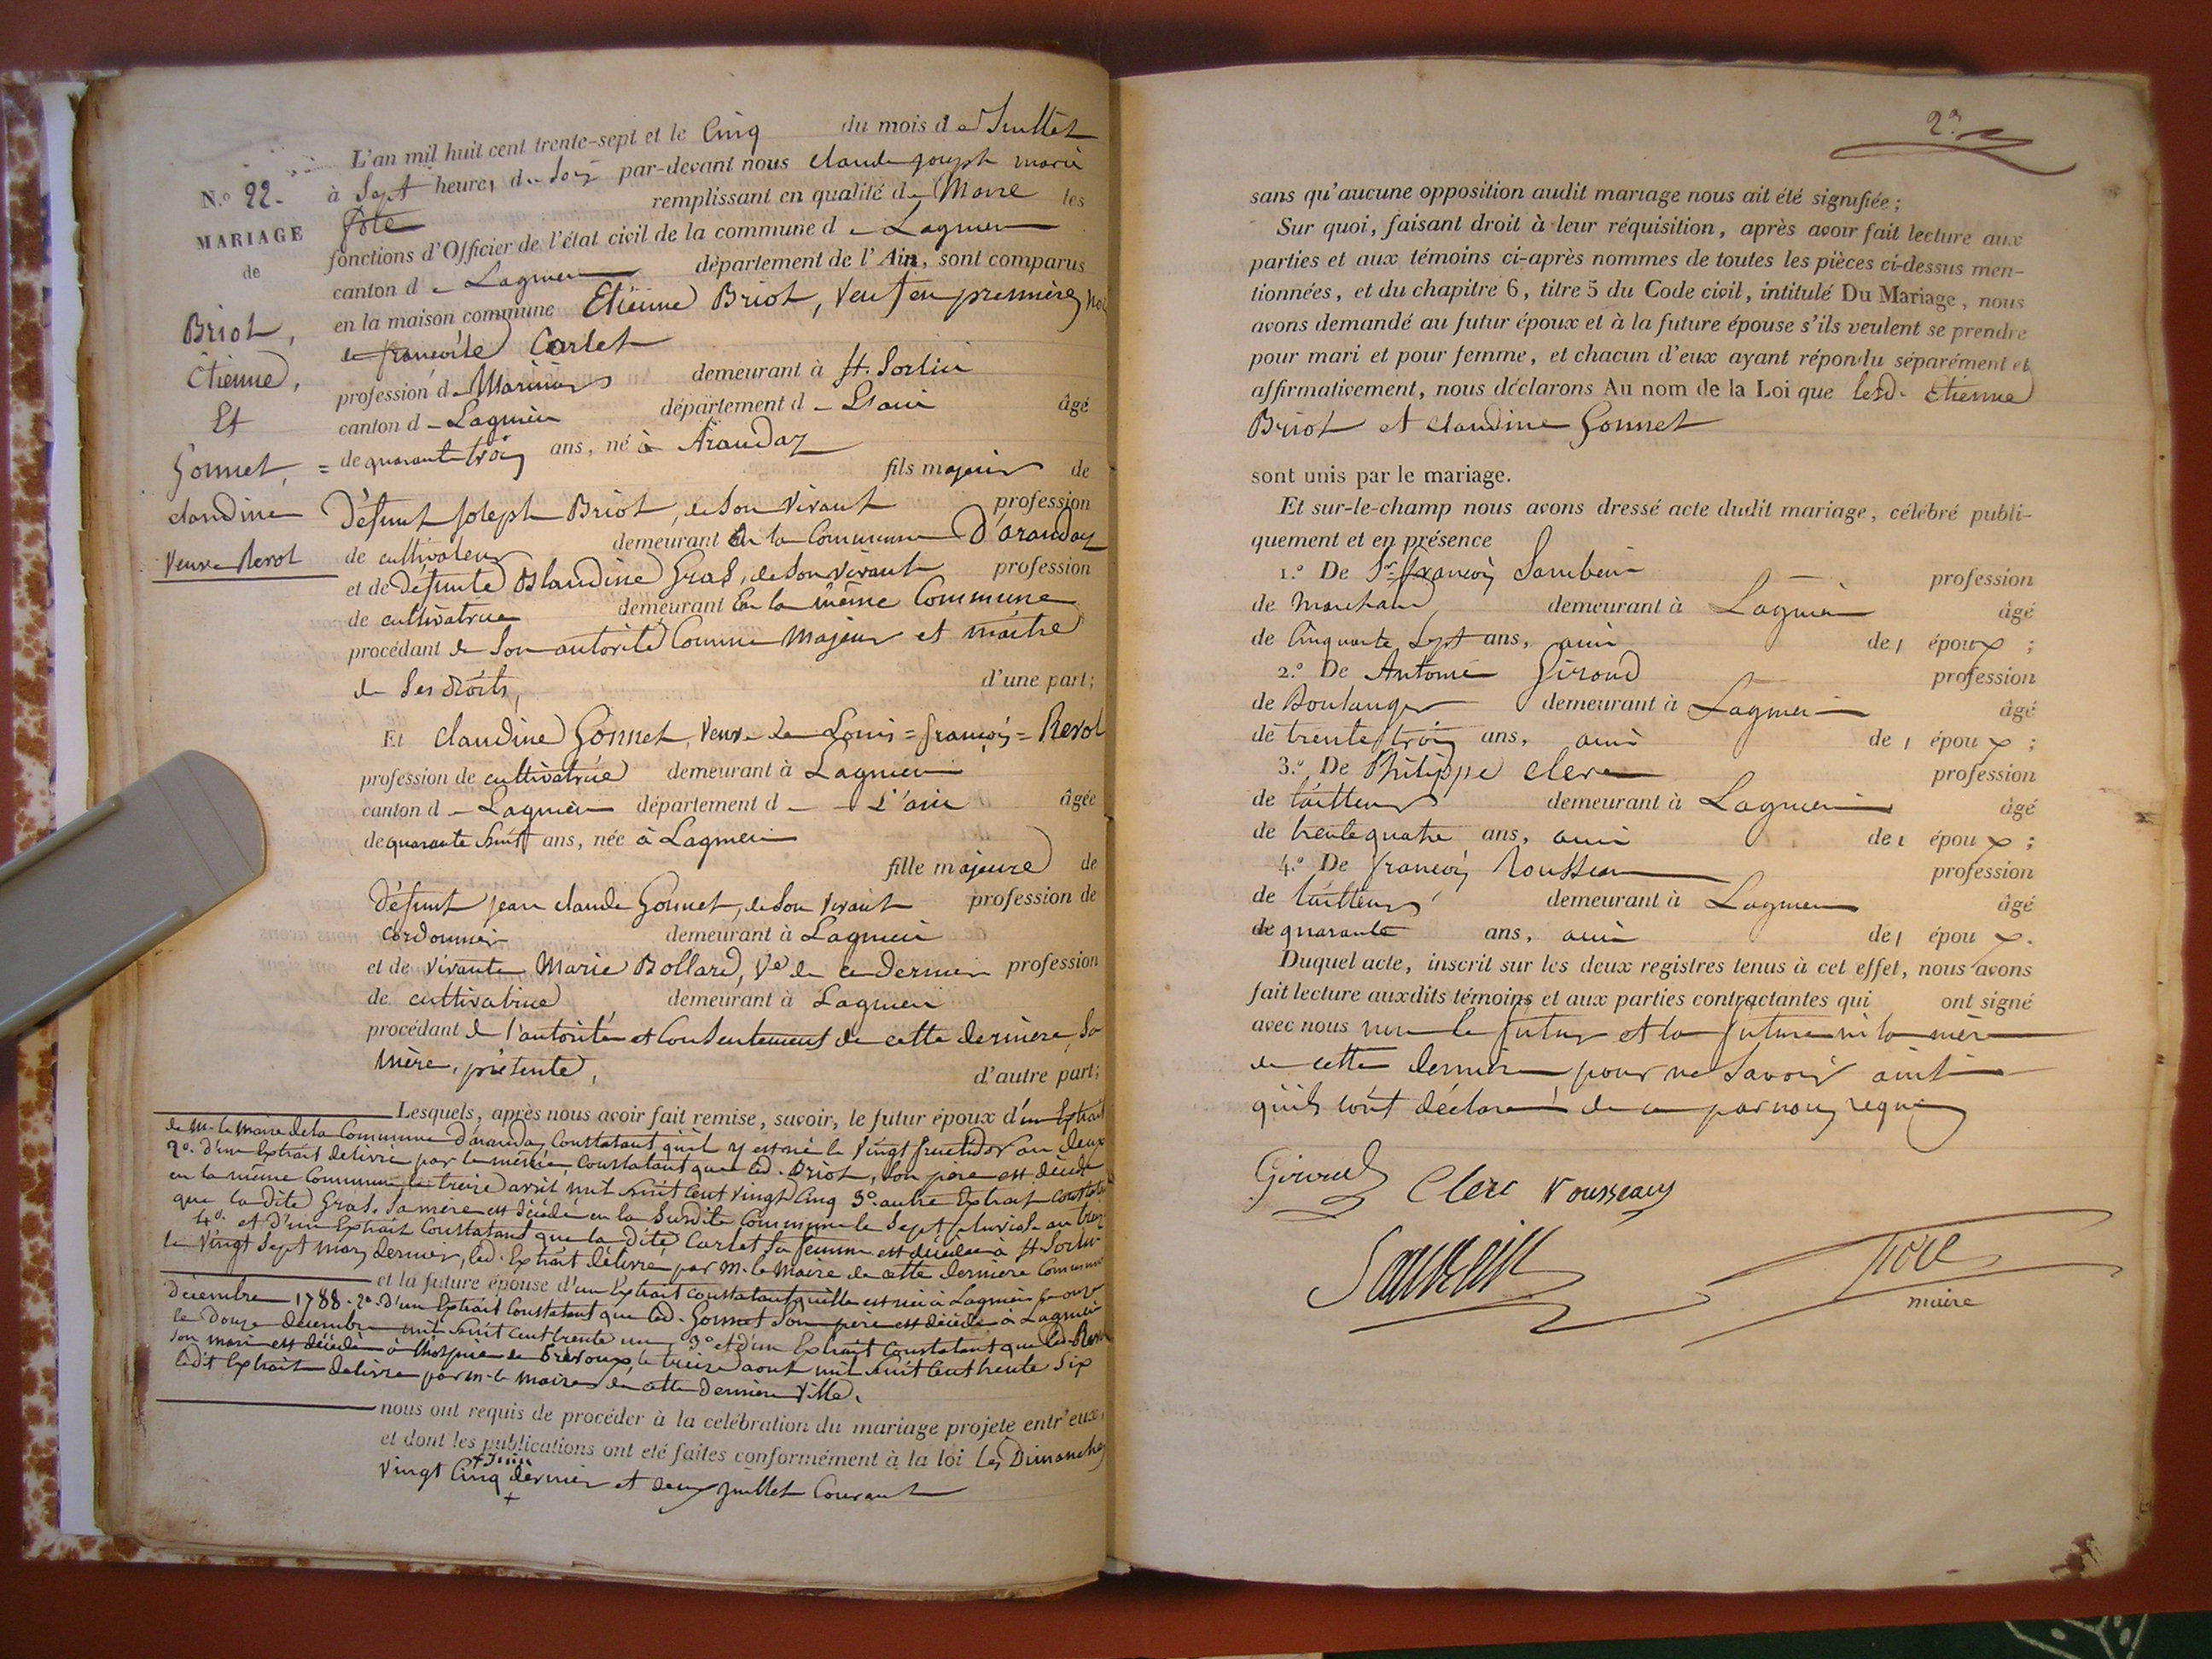 N.o 22.
MARIAGE
de
Briot,
Etienne,
Et
Gonnet,
claudine
Veuve Revol
L'an mil huit cent trente-sept et le Cinq du mois de Juillet
à Sept heures du Soir par-devant nous claude joseph marie
remplissant en qualité de Maire les
fonctions d'Officier de l'état civil de la commune de Lagnieu
canton de Lagnieu département de l'Ain, sont comparus
en la maison commune Etienne Briot, Veuf en premières
de françoise Carlet
profession de Marinier demeurant à St. Sorlin
canton de Lagnieu département de L'ain âgé
= de quarante trois ans, né à Arandaz
fils majeur de
Défunt Joseph Briot, de Son Vivant profession
de cultivateur demeurant En la Commune D'arandaz
et de Défunte Claudine Gras, de Son vivant profession
de cultivatrice demeurant En la même Commune
procédant de Son autorité Comme Majeur et maitre
de Ses droits, d'une part;
Et Claudine Gonnet, Veuve de Louis=françois=Revol
profession de cultivatrice demeurant à Lagnieu
canton de Lagnieu département de L'ain âgée
de quarante huit ans, née à Lagnieu
fille majeure de
Défunt jean claude Gonnet, de Son vivant profession de
cordonnier demeurant à Lagnieu
et de vivante Marie Bollard, Ve de ce dernier profession
de cultivatrice demeurant à Lagnieu
procédant de l'autorité et Consentement de cette dernière, Sa
mère, présente, d'autre part;
Lesquels, après nous avoir fait remise, savoir, le futur époux d'un Extrait
de Mr. le Maire de la Commune d'arandaz Constatant qu'il y est né le Vingt fructidor an deux
2o. d'un Extrait délivré par le même, Constatant que led. Briot, Son père est décédé
en la même Commune le treize avril mil huit Cent vingt Cinq 3o. autre Extrait constatant
que la dite Gras, Sa mère est décédée en la Susdite Commune le Sept pluviose an
4o. et d'un Extrait Constatant que la dite Carlet Sa femme est décédée à St. Sorlin
le Vingt Sept mars dernier, led. Extrait délivré par Mr. le Maire de cette dernière Commune
et la future épouse d'un Extrait constatant qu'elle est née à Lagnieu le onze
Décembre 1788. 2o. D'un Extrait Constatant que led. Gonnet Son père est décédé à Lagnieu
le Douze décembre mil huit Cent trente un, 3o. et d'un Extrait Constatant que led. Revol
Son mari est décédé à l'hospice de Trévoux, le treize aout mil huit Cent trente Six
ledit Extrait délivré par Mr. le Maire de cette Dernière Ville.
nous ont requis de procéder à la célébration du mariage projeté entr'eux,
et dont les publications ont été faites conformément à la loi Les Dimanches
+ Juin
Vingt Cinq dernier et deux juillet Courant
+
sans qu'aucune opposition audit mariage nous ait été signifiée;
Sur quoi, faisant droit à leur réquisition, après avoir fait lecture aux
parties et aux témoins ci-après nommés de toutes les pièces ci-dessus men-
tionnées, et du chapitre 6, titre 5 du Code civil, intitulé Du Mariage, nous
avons demandé au futur époux et à la future épouse s'ils veulent se prendre
pour mari et pour femme, et chacun d'eux ayant répondu séparément et
affirmativement, nous déclarons Au nom de la Loi que lesd. Etienne
Briot et claudine Gonnet
sont unis par le mariage.
Et sur-le-champ nous avons dressé acte dudit mariage, célébré publi-
quement et en présence
1.o De Sr. françois profession
de Marchand demeurant à Lagnieu âgé
de Cinquante Sept ans, ami des époux ;
2.o De Antoine Giroud profession
de Boulanger demeurant à Lagnieu âgé
de trente trois ans, ami des époux ;
3.o De Philippe Clerc profession
de tailleur demeurant à Lagnieu âgé
de trente quatre ans, ami des époux ;
4.o De françois Rousseau profession
de tailleur demeurant à Lagnieu âgé
de quarante ans, ami des époux .
Duquel acte, inscrit sur les deux registres tenus à cet effet, nous avons
fait lecture auxdits témoins et aux parties contractantes qui ont signé
avec nous non le futur et la future ni la mère
de cette dernière pour ne Savoir ainsi
qu'ils l'ont déclaré de ce par nous requis
Giroud Clerc rousseau
maire